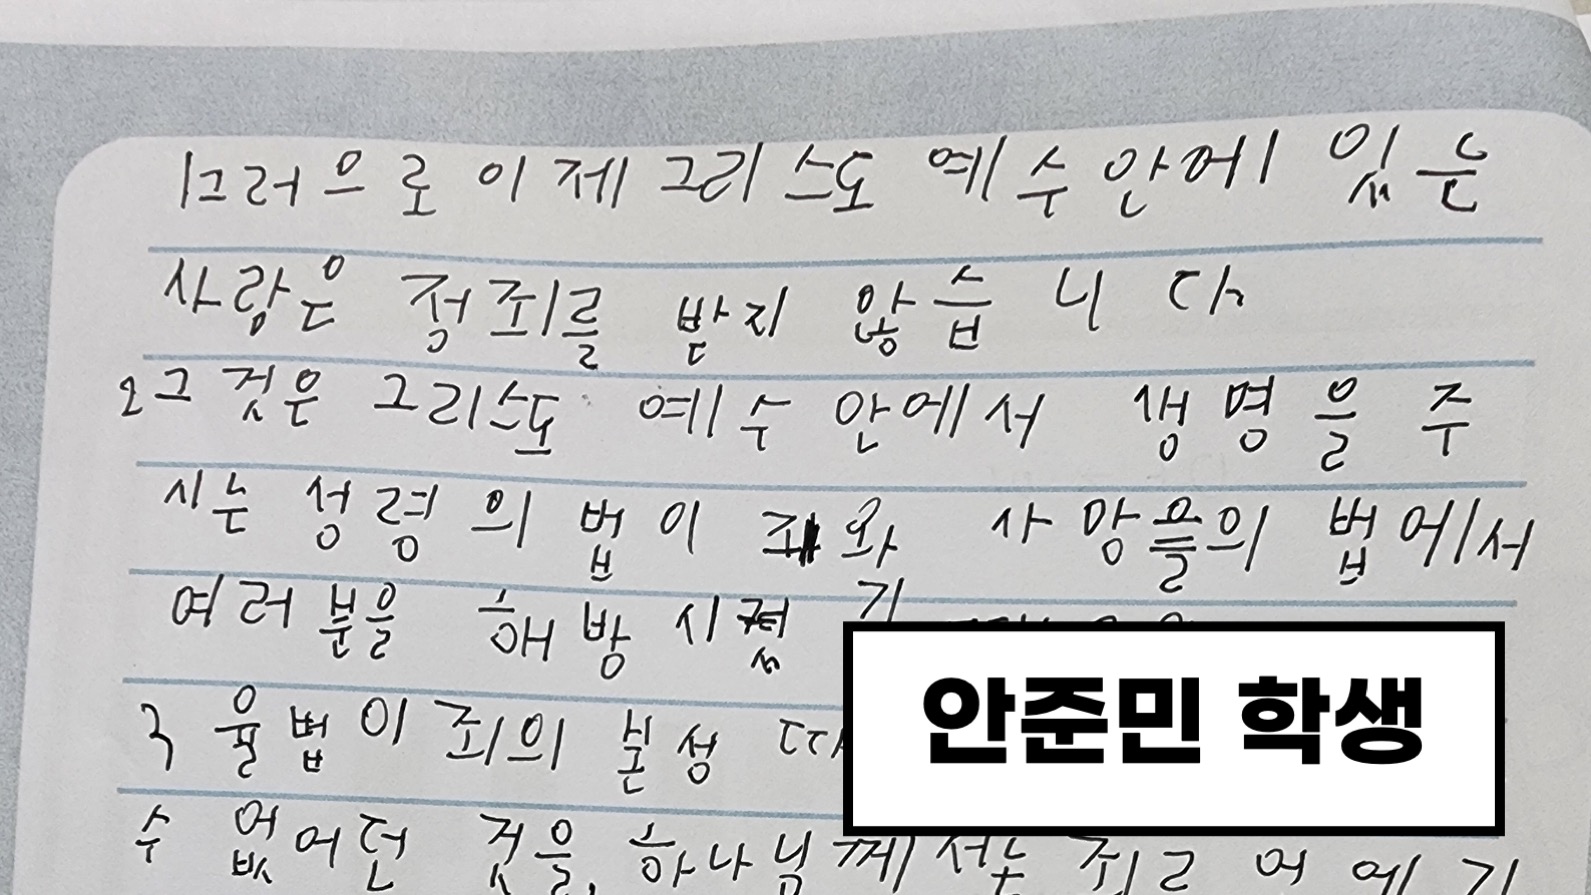 1그러므로 이제 그리스도 예수 안에 있는
사람은 정죄를 받지 않습니다
2그것은 그리스도 예수 안에서 생명을 주
시는 성령의 법이 죄와 사망을의 법에서
여러분을 해방시켰기
3 율법이 죄의 본성
안준민 학생
수 없었던 것을, 하나님께서는